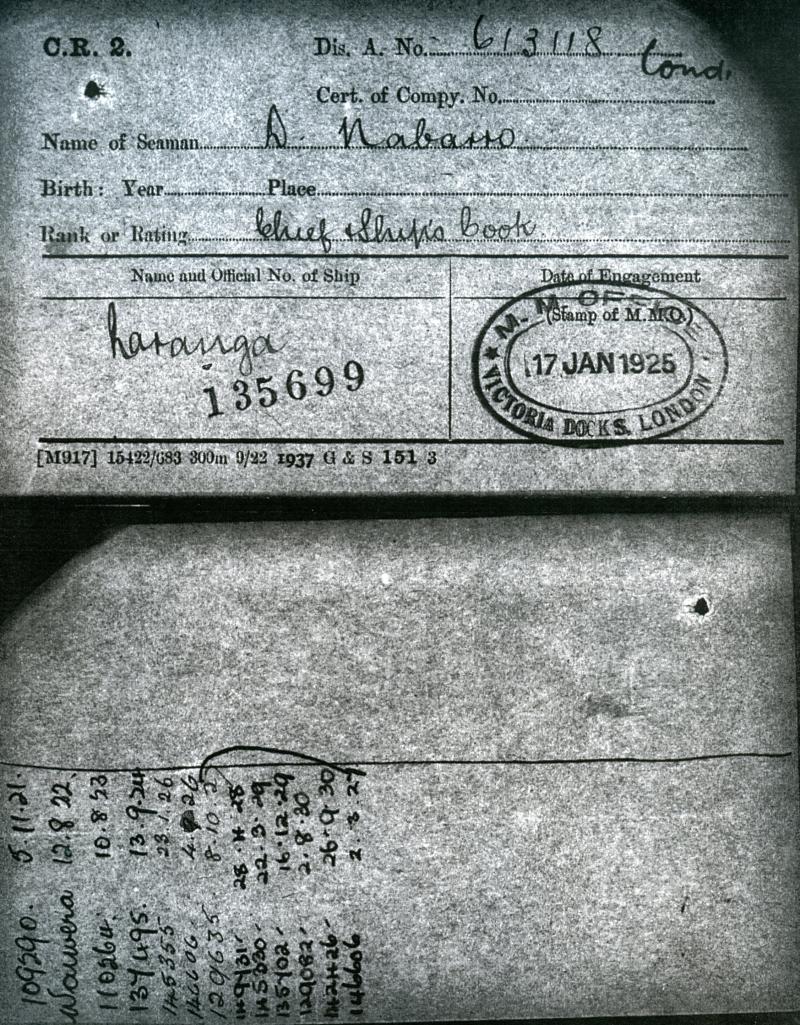 C.R. 2.
Dis. A. No. 613118 Lond.
Cert. of Compy. No.
Name of Seaman D. Nabarro
Birth: Year Place
Rank or Rating Chief & Ship's Cook
Name and Official No. of Ship
Date of Engagement
(Stamp of M.M.O.)
M. M. OFFICE
17 JAN 1925
VICTORIA DOCKS, LONDON
Karanga
135699
[M917] 15422/683 300m 9/22 1937 G & S 151 3
109290. 5.11.21.
12.8.22.
110264. 10.8.23
137495. 13.9.24
145355 23.1.26
146606. 4. 26
129635. 8.10.2
149431 28.4.28
145030 22.3.29
135402 16.12.29
129082 2.8.30
142426 26.9.30
146606 2.3.27